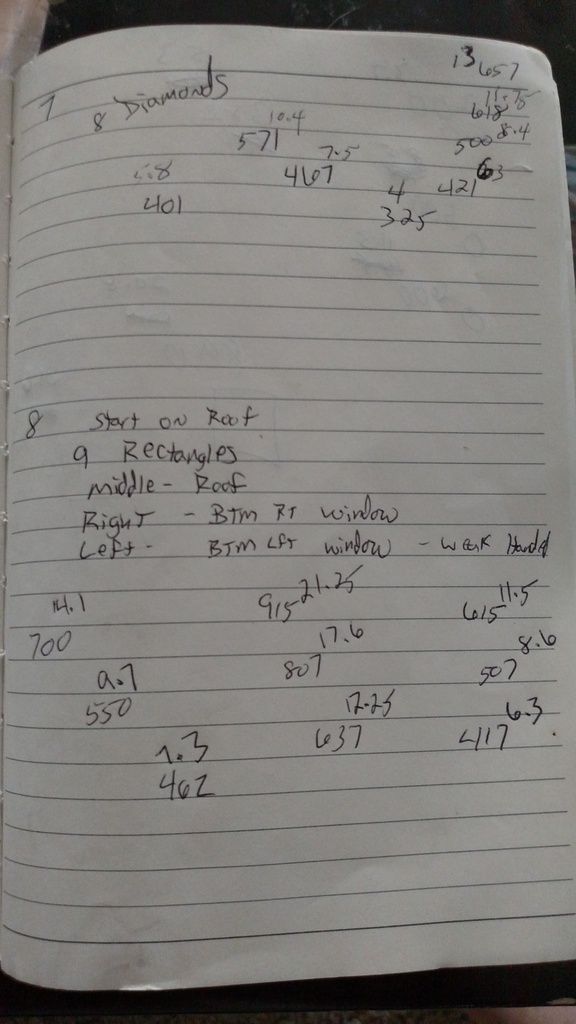 13 657
7 8 Diamonds 11.75
10.4 618
571 7.5 500 8.4
5.8 467 4 421 63
401 325
8 Start on Roof
9 Rectangles
Middle - Roof
Right - BTM RT window
Left - BTM LFT window - weak Hand
14.1 915 21.25 615 11.5
700 17.6 8.6
9.7 807 507
550 12.25 6.3
7.3 637 417
462